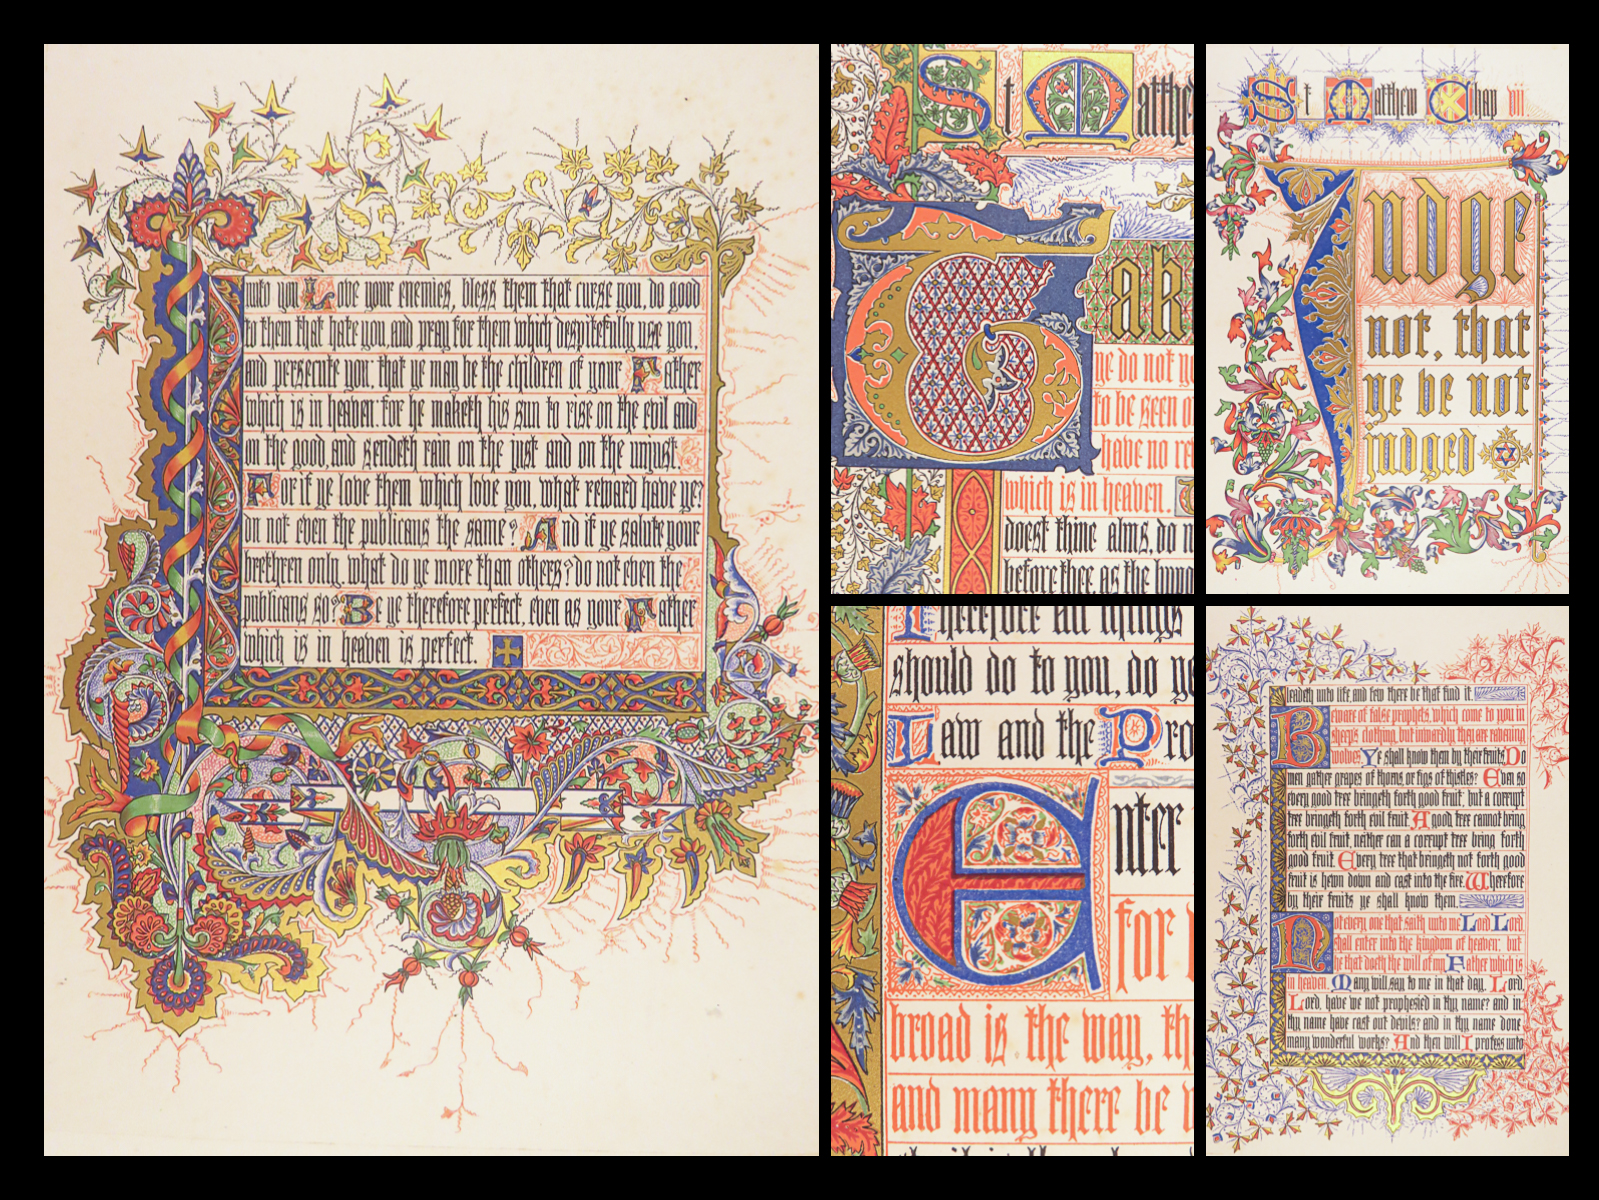 unto you Love your enemies, bless them that curse you, do good
to them that hate you, and pray for them which despitefully use you,
and persecute you: that ye may be the children of your Father
which is in heaven: for he maketh his sun to rise on the evil and
on the good, and sendeth rain on the just and on the unjust.
For if ye love them which love you, what reward have ye?
do not even the publicans the same? And if ye salute your
brethren only, what do ye more than others? do not even the
publicans so? Be ye therefore perfect, even as your Father
which is in heaven is perfect.
St Matthe
TAK
ye do not yo
to be seen o
have no re
which is in heaven.
doest thine alms, do n
before thee, as the hypo
St Matthew Chap vii
Judge
not, that
ye be not
judged
Therefore all things
should do to you, do ye
Law and the Pro
Enter
for
broad is the way, th
and many there be
leadeth unto life, and few there be that find it.
Beware of false prophets, which come to you in
sheep's clothing, but inwardly they are ravening
wolves. Ye shall know them by their fruits Do
men gather grapes of thorns or figs of thistles? Even so
every good tree bringeth forth good fruit; but a corrupt
tree bringeth forth evil fruit. A good tree cannot bring
forth evil fruit, neither can a corrupt tree bring forth
good fruit. Every tree that bringeth not forth good
fruit is hewn down and cast into the fire. Wherefore
by their fruits ye shall know them.
Not every one that saith unto me Lord Lord,
shall enter into the kingdom of heaven; but
he that doeth the will of my Father which is
in heaven. Many will say to me in that day, Lord,
Lord, have we not prophesied in thy name? and in
thy name have cast out devils? and in thy name done
many wonderful works? And then will I profess unto